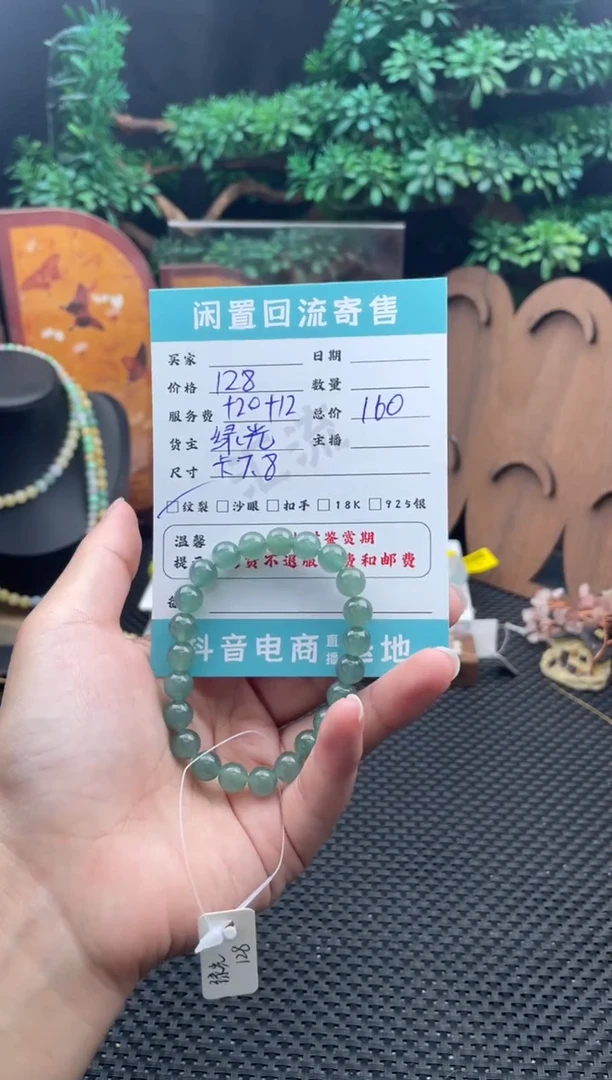 闲置回流寄售
买家 日期
价格 128 数量
服务费 +20+12 总价 160
货主 绿光 主播
尺寸 卡7.8
□纹裂 □沙眼 □扣手 □18K □925银
温馨 鉴赏期
提 不退服 费和邮费
抖音电商 直播 基地
绿光 128